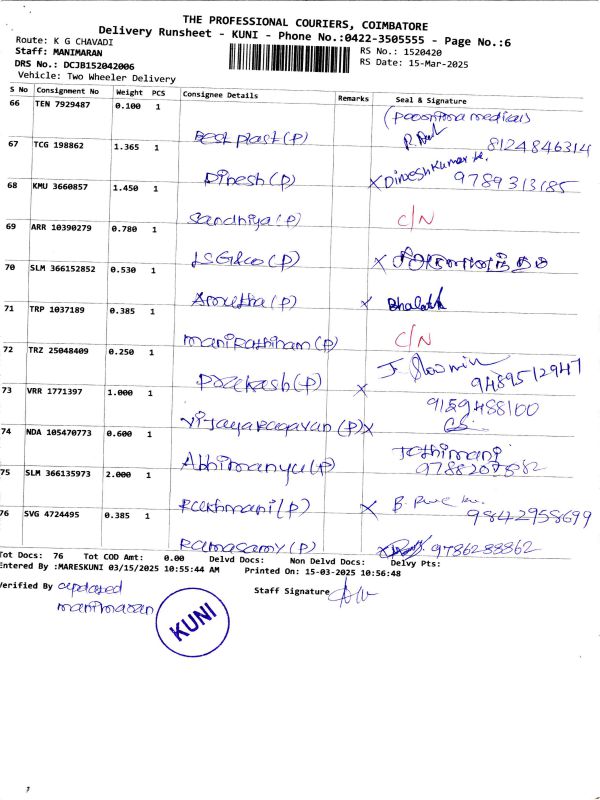 THE PROFESSIONAL COURIERS, COIMBATORE
Delivery Runsheet - KUNI - Phone No.:0422-3505555 - Page No.:6
Route: K G CHAVADI
RS No.: 1520420
Staff: MANIMARAN
RS Date: 15-Mar-2025
DRS No.: DCJB152042006
Vehicle: Two Wheeler Delivery
S No Consignment No Weight PCS Consignee Details Remarks Seal & Signature
66 TEN 7929487 0.100 1 Best plast (P) (poornima medicals) 8124846314
67 TCG 198862 1.365 1 Dinesh (P) X Dineshkumar k. 9789313185
68 KMU 3660857 1.450 1 Sandhiya (P) C/N
69 ARR 10390279 0.780 1 LSG&co (P) X
70 SLM 366152852 0.530 1 Amrutha (P) X
71 TRP 1037189 0.385 1 manirathinam (P) C/N
72 TRZ 25048409 0.250 1 Prakash (P) X 9489512947
73 VRR 1771397 1.000 1 Vijayaragavan (P) X 9159488100
74 NDA 105470773 0.600 1 Abhimanyu (P) Jothimani
75 SLM 366135973 2.000 1 Rukhmani (P) X 9842958699
76 SVG 4724495 0.385 1 Ramasamy (P) 9786288862
Tot Docs: 76 Tot COD Amt: 0.00 Delvd Docs: Non Delvd Docs: Delvy Pts:
Entered By :MARESKUNI 03/15/2025 10:55:44 AM Printed On: 15-03-2025 10:56:48
Verified By updated
manimaran
Staff Signature
KUNI